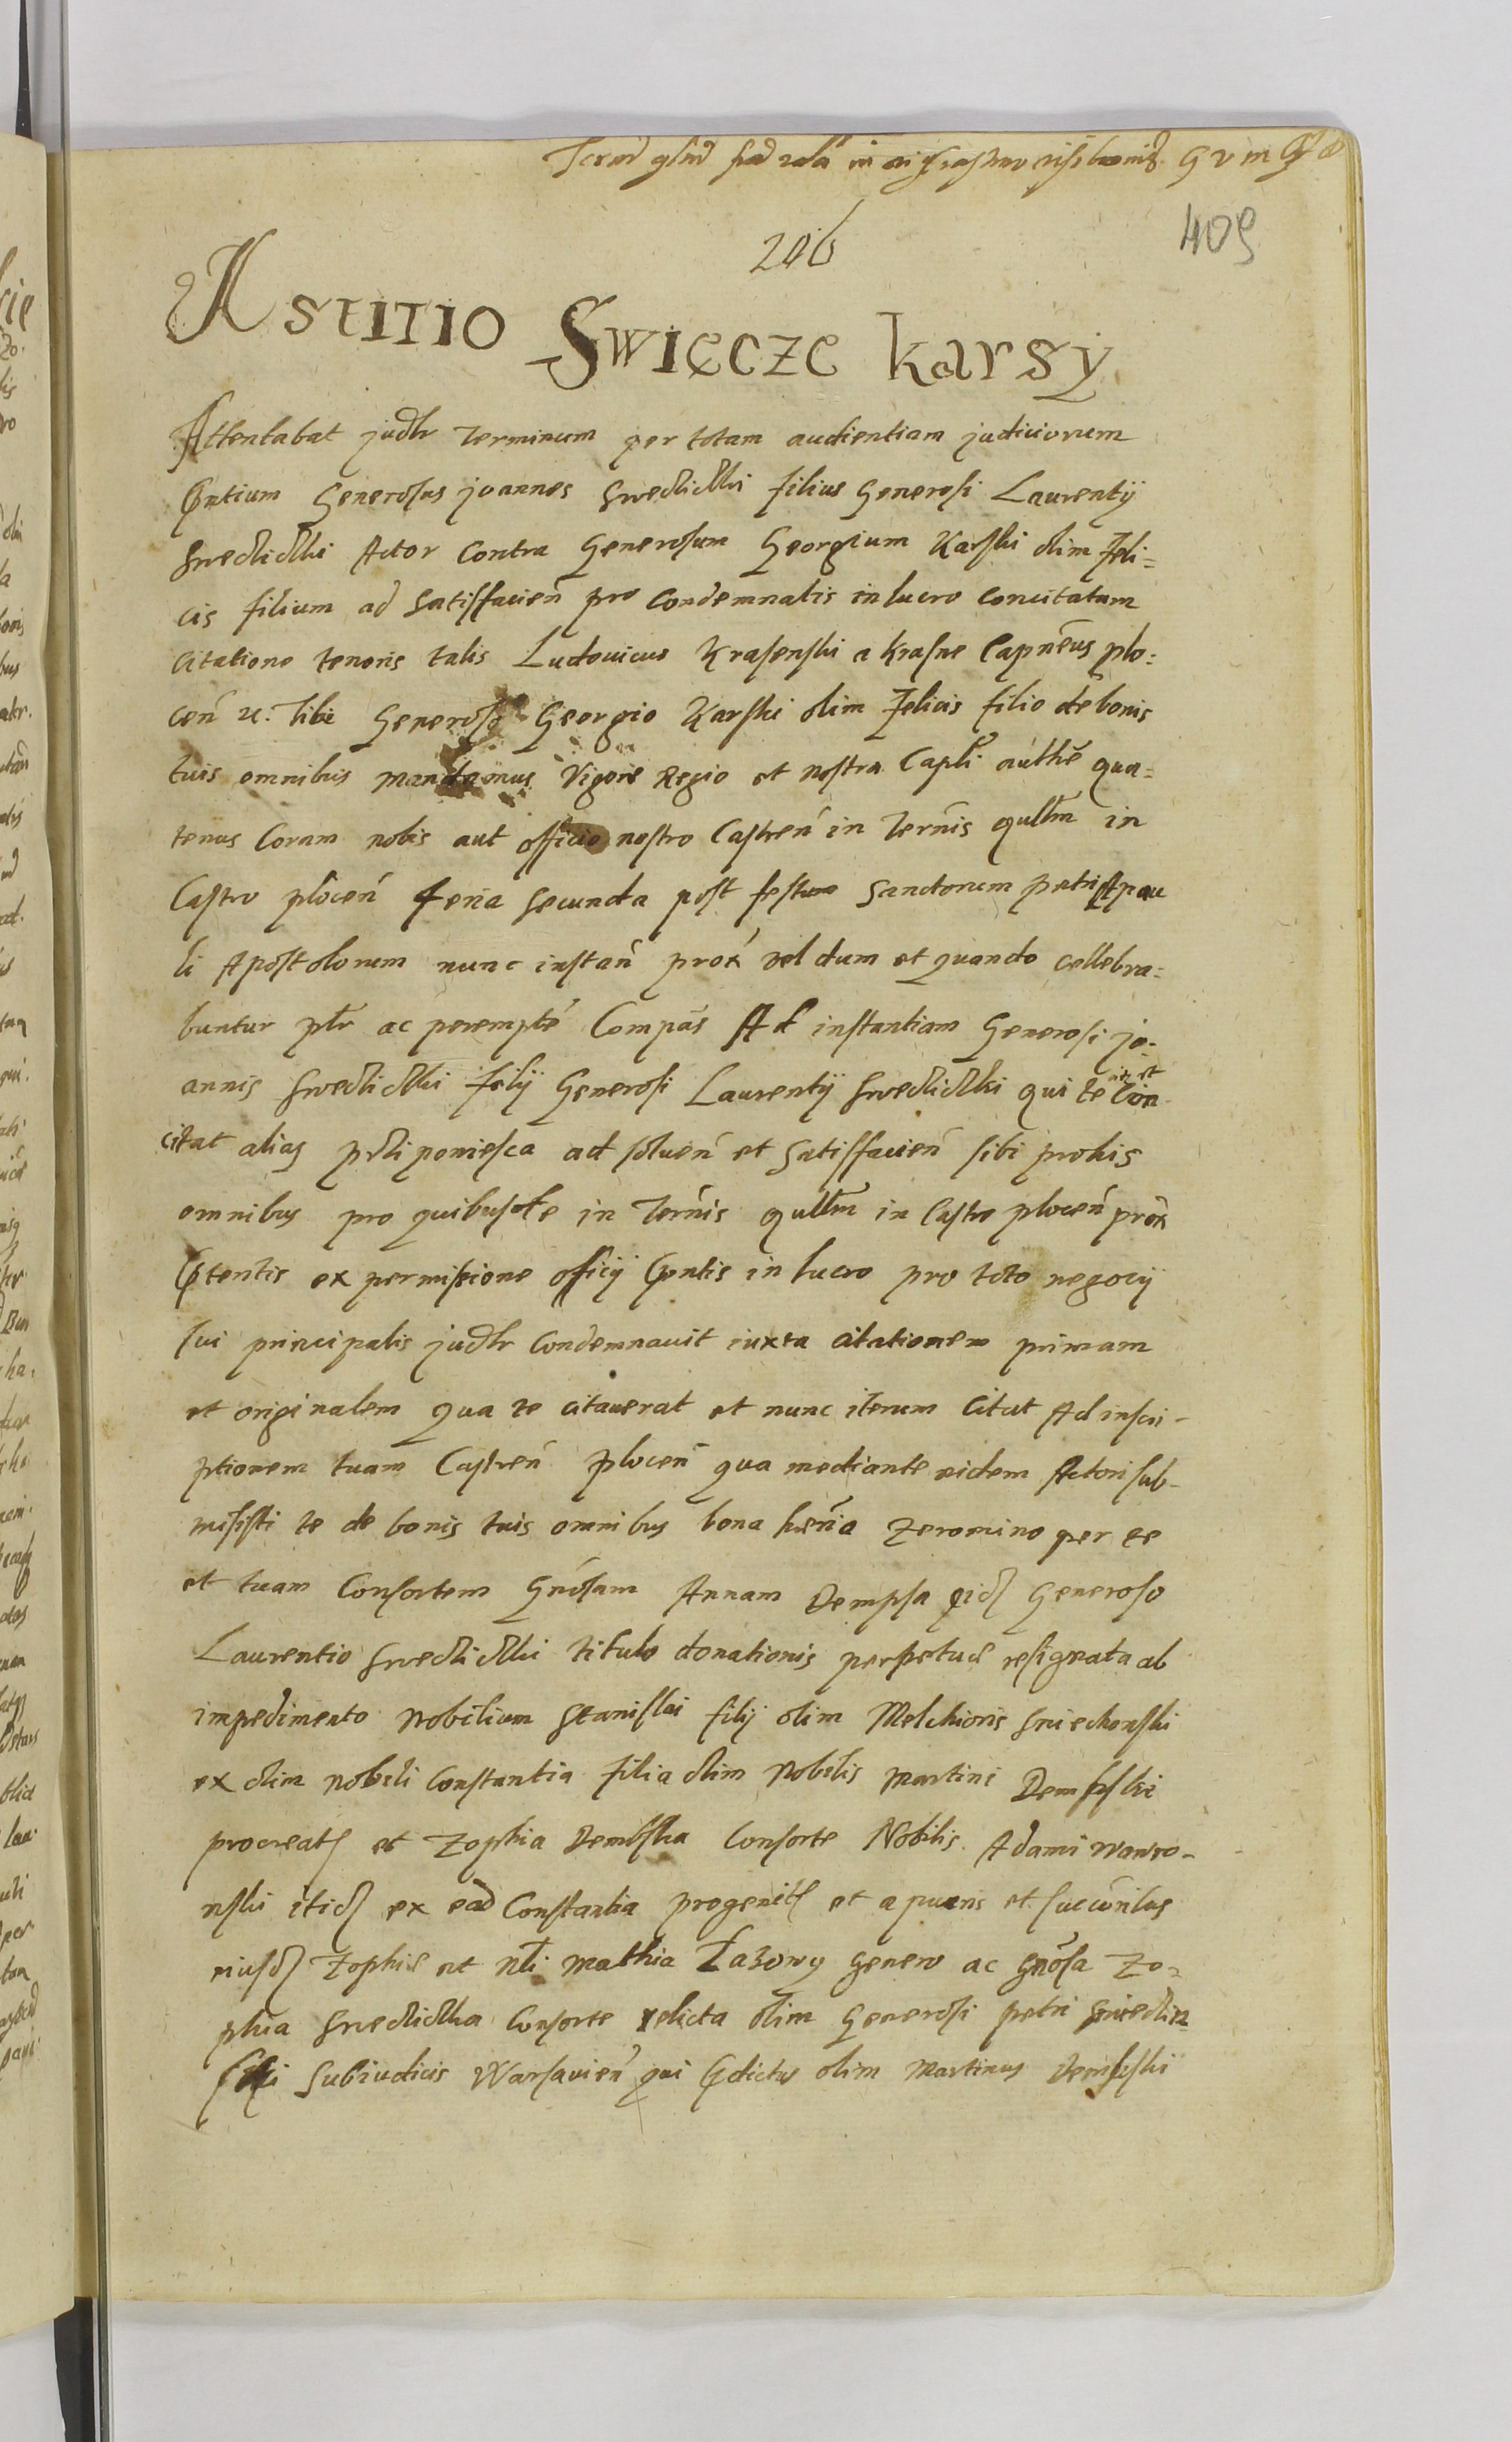 206
409
Astitio Swięcze Karsy
Attentabat judtr terminum per totam audientiam judiciorum
pntium Generosus joannes Swedlidlki filius Generosi Laurentij
Swedlidlki Actor contra Generosum Georgium Karski olim Feli=
cis filium ad satisfacien pro condemnatis in lucro concitatum
citatione tenoris talis Ludovicus Krasenski a Krasne Capneus plo:
cen etc. Tibi Generoso Georgio Karski olim Felicis filio de bonis
tuis omnibus mandamus vigore Regio et nostra Capli authe qua=
tenus Coram nobis aut officio nostro Castren in ternis qullm in
Castro plocen feria secunda post festum sanctorum petri et pau
li Apostolorum nunc instan prox vel dum et quando cellebra=
buntur pltr ac perempte Compas Ad instantiam Generosi jo-
annis Swedlidlki filij Generosi Laurentij Swedlidlki qui te con-
citat alias poniesca ad soluen et satisfacien sibi pro his
omnibus pro quibus te in ternis qullm in Castro plocen prox
ptentis ex permissione officij pntis in lucro pro toto negocij
sui principalis judtr condemnavit iuxta citationem primam
et originalem qua te citaverat et nunc iterum citat Ad inscri-
ptionem tuam Castren plocen qua mediante eidem Actori sub-
misisti te de bonis tuis omnibus bona hæria Zeromino per te
et tuam Consortem Gnosam Annam Dempska Generoso
Laurentio Swedlidlki titulo donationis perpetuæ resignata ab
impedimento Nobilium Stanislai filij olim Melchioris Sniechowski
ex olim nobili Constantia filia olim Nobilis Martini Dempski
procreati et Zophia Dembska Consorte Nobilis Adami Wawro-
nski itid ex ead Constantia et a pueris et succoribus
eiusd Zophiæ et Nli Mathia Łazowy genero ac Gnosa Zo=
phia Swedlidlka Consorte relicta olim Generosi petri Swiedlin
ski Subiudicis Warsavien qui pdictus olim Martinus Dembski